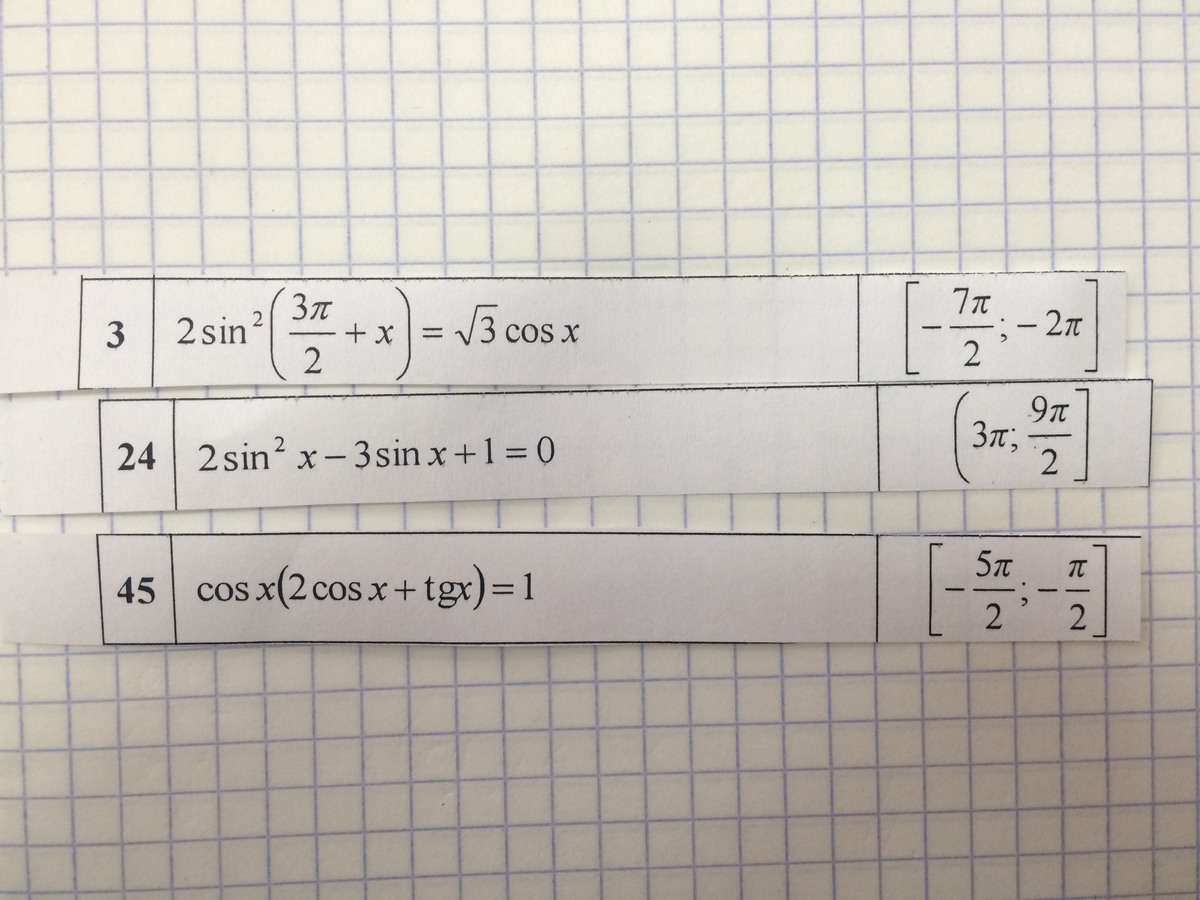 3 2 sin²(3π/2 + x) = √3 cos x [−7π/2; −2π]
24 2 sin² x − 3 sin x + 1 = 0 (3π; 9π/2]
45 cos x(2 cos x + tgx) = 1 [−5π/2; −π/2]